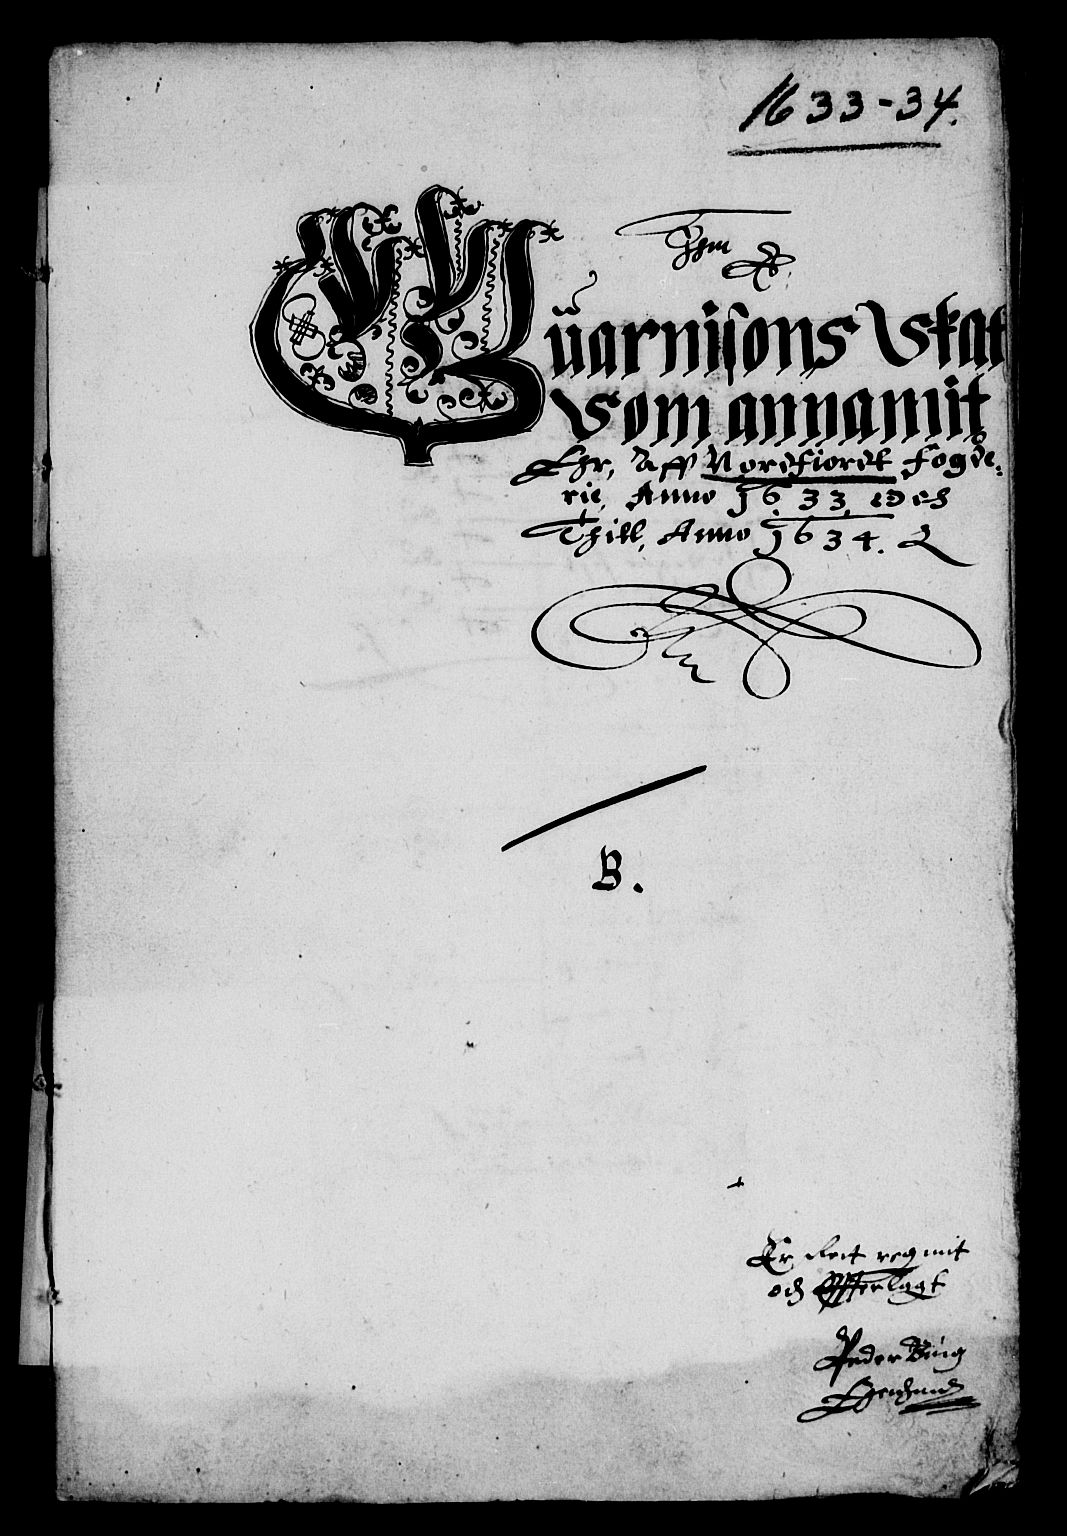 1633-34.
Guarnisons Skat
Som annamit
Ehr, Aff Nordfiordt Fogde=
rie, Anno 1633, och
Thill, Anno 1634.
B.
Er rett regnit
och Offterlagt
Peder